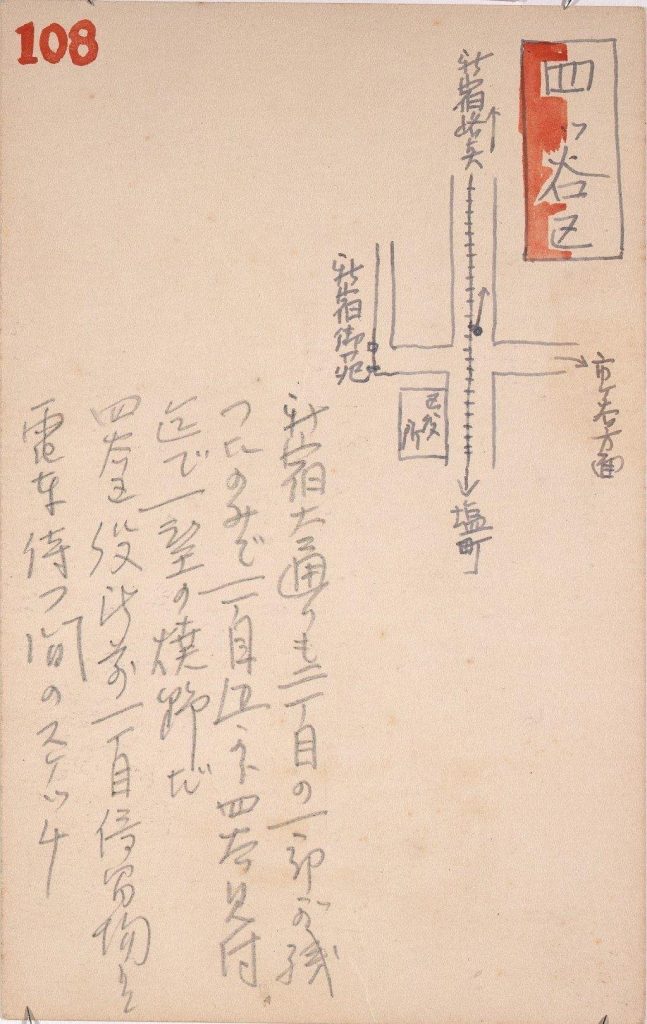 108
四ッ谷区
新宿終点
新宿御苑
市ヶ谷方面
区役所
塩町
新宿大通りも二丁目の一部が残
つたのみで一丁目辺から四谷見付
迄で一望の焼野だ
四谷区役所前一丁目停留場に
電車待つ間のスケッチ